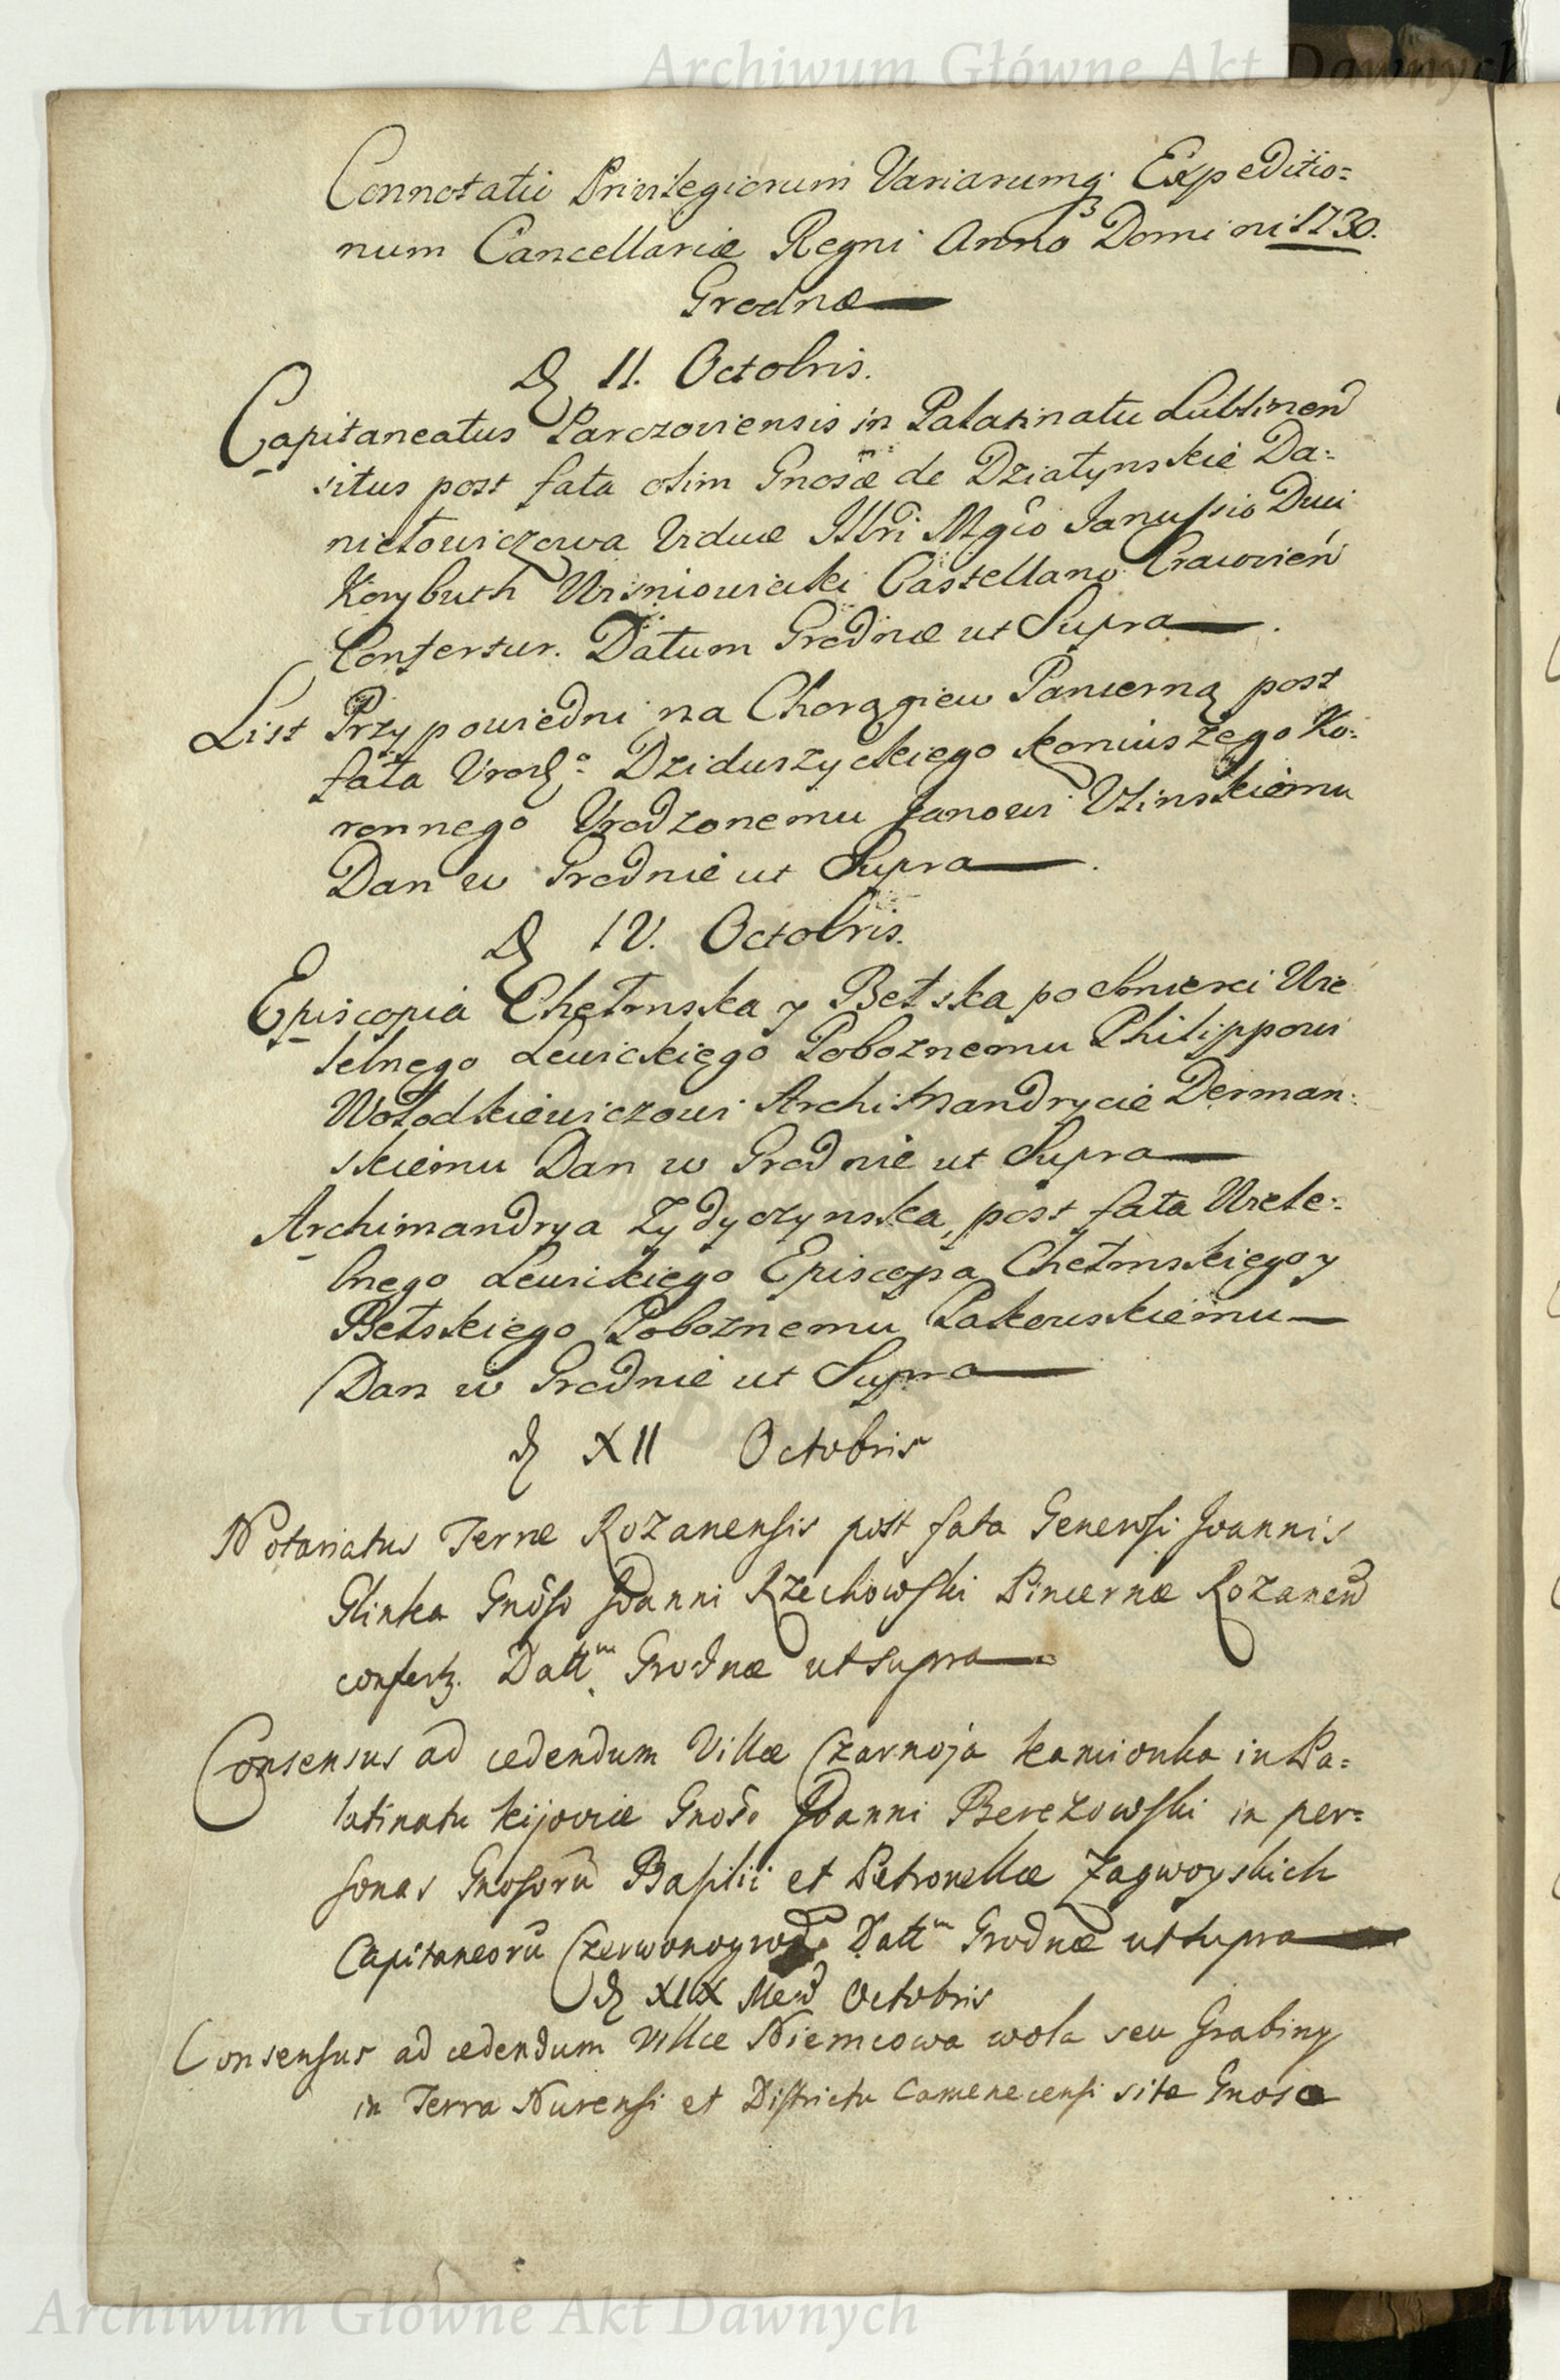 Archiwum Główne Akt Dawnych
Connotatio Privilegiorum Variarumq3 Expeditio=
num Cancellariæ Regni Anno Domini 1730.
Grodnæ
D 11. Octobris.
Capitaneatus Parczoviensis in Palatinatu Lublinen
situs post fata olim Gnosæ de Działynskie Da=
niełowiczowa Viduæ Illri Mgco Janussio Duci
Korybuth Wiśniowiecki Castellano Cracovień
Confertur. Datum Grodnæ ut Supra
List Przypowiedni na Chorągiew Pancerną post
fata Urodzo Dziduszyckiego Koniuszego Ko=
ronnego Urodzonemu Janowi Uzinskiemu
Dan w Grodnie ut Supra
D IV. Octobris.
Episcopia Chełmska y Bełska po śmierci Wie
lebnego Lewickiego Poboznemu Philippowi
Wołodkiewiczowi Archimandrycie Derman=
skiemu Dan w Grodnie ut Supra
Archimandrya Zydyczynska, post fata Wiele=
bnego Lewickiego Episcopa Chełmskiego y
Bełskiego Poboznemu
Dan w Grodnie ut Supra
d XII Octobris
Notariatus Terræ Rozanensis post fata Generosi Joannis
Glinka Gnoso Joanni Rzechowski Pincernæ Rozanen
confertz. Dattm Grodnæ ut supra
Consensus ad cedendum Villæ Czarnoja Kamionka in Pa=
latinatu Kijoviæ Gnoso Joanni Berezowski in per=
sonas Gnosorū Basilii et Petronellæ Zagwoyskich
Capitaneorū Czerwonogrod. Dattm Grodnæ ut supra
d XIX Men Octobris
Consensus ad cedendum Villæ Niemcowa wola seu Grabiny
in Terra Nurensi et Districtu Camenecensi sitæ Gnosæ
Archiwum Główne Akt Dawnych